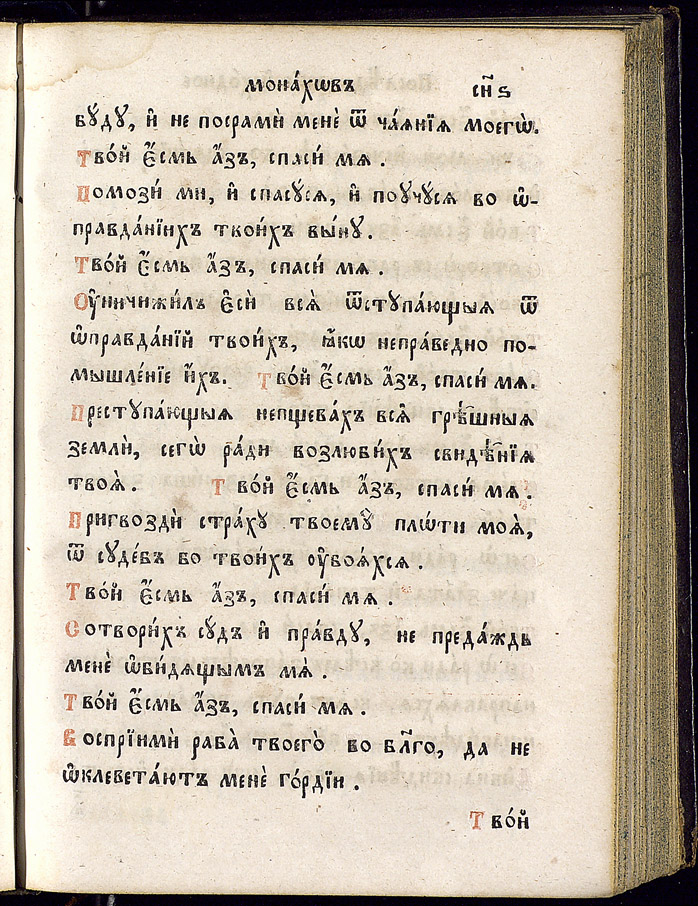 мона́хѡвъ сн҃ѕ
бꙋ́дꙋ, и҆ не посрамѝ менѐ ѿ ча́ѧнїѧ моегѡ̀.
Тво́й є҆́смь а҆́зъ, спаси́ мѧ .
Помози́ ми, и҆ спасꙋ́сѧ, и҆ поꙋчꙋ́сѧ во ѡ҆-
правда́нїихъ твои́хъ вы́нꙋ .
Тво́й є҆́смь а҆́зъ, спаси́ мѧ .
Оу҆ничижи́лъ є҆сѝ всѧ̀ ѿстꙋпа́ющыѧ ѿ
ѡ҆правда́нїй твои́хъ, ꙗ҆́кѡ непра́ведно по-
мышле́нїе и҆́хъ. Тво́й є҆́смь а҆́зъ, спаси́ мѧ.
Престꙋпа́ющыѧ непщева́хъ всѧ̀ грѣ́шныѧ
землѝ, сегѡ̀ ра́ди возлюби́хъ свидѣ́нїѧ
твоѧ̀ . Тво́й є҆́смь а҆́зъ, спаси́ мѧ .
Пригвоздѝ стра́хꙋ твоемꙋ̀ плѡ́ти моѧ̀,
ѿ сꙋде́бъ бо твои́хъ ᲂу҆боѧ́хсѧ .
Тво́й є҆́смь а҆́зъ, спаси́ мѧ .
Сотвори́хъ сꙋ́дъ и҆ пра́вдꙋ, не преда́ждь
менѐ ѡ҆би́дѧщымъ мѧ̀ .
Тво́й є҆́смь а҆́зъ, спаси́ мѧ .
Воспрїимѝ раба̀ твоего̀ во бл҃го, да не
ѡ҆клевета́ютъ менѐ го́рдїи .
Тво́й